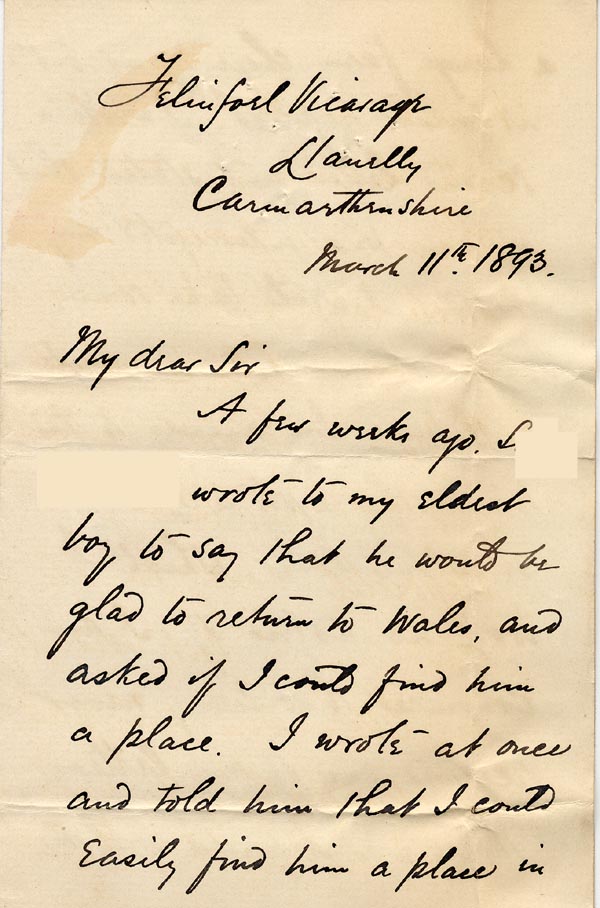 Felinfoel Vicarage
Llanelly
Carmarthenshire
March 11th. 1893.
My dear Sir
A few weeks ago.
wrote to my eldest
boy to say that he would be
glad to return to Wales, and
asked if I could find him
a place. I wrote at once
and told him that I could
Easily find him a place in